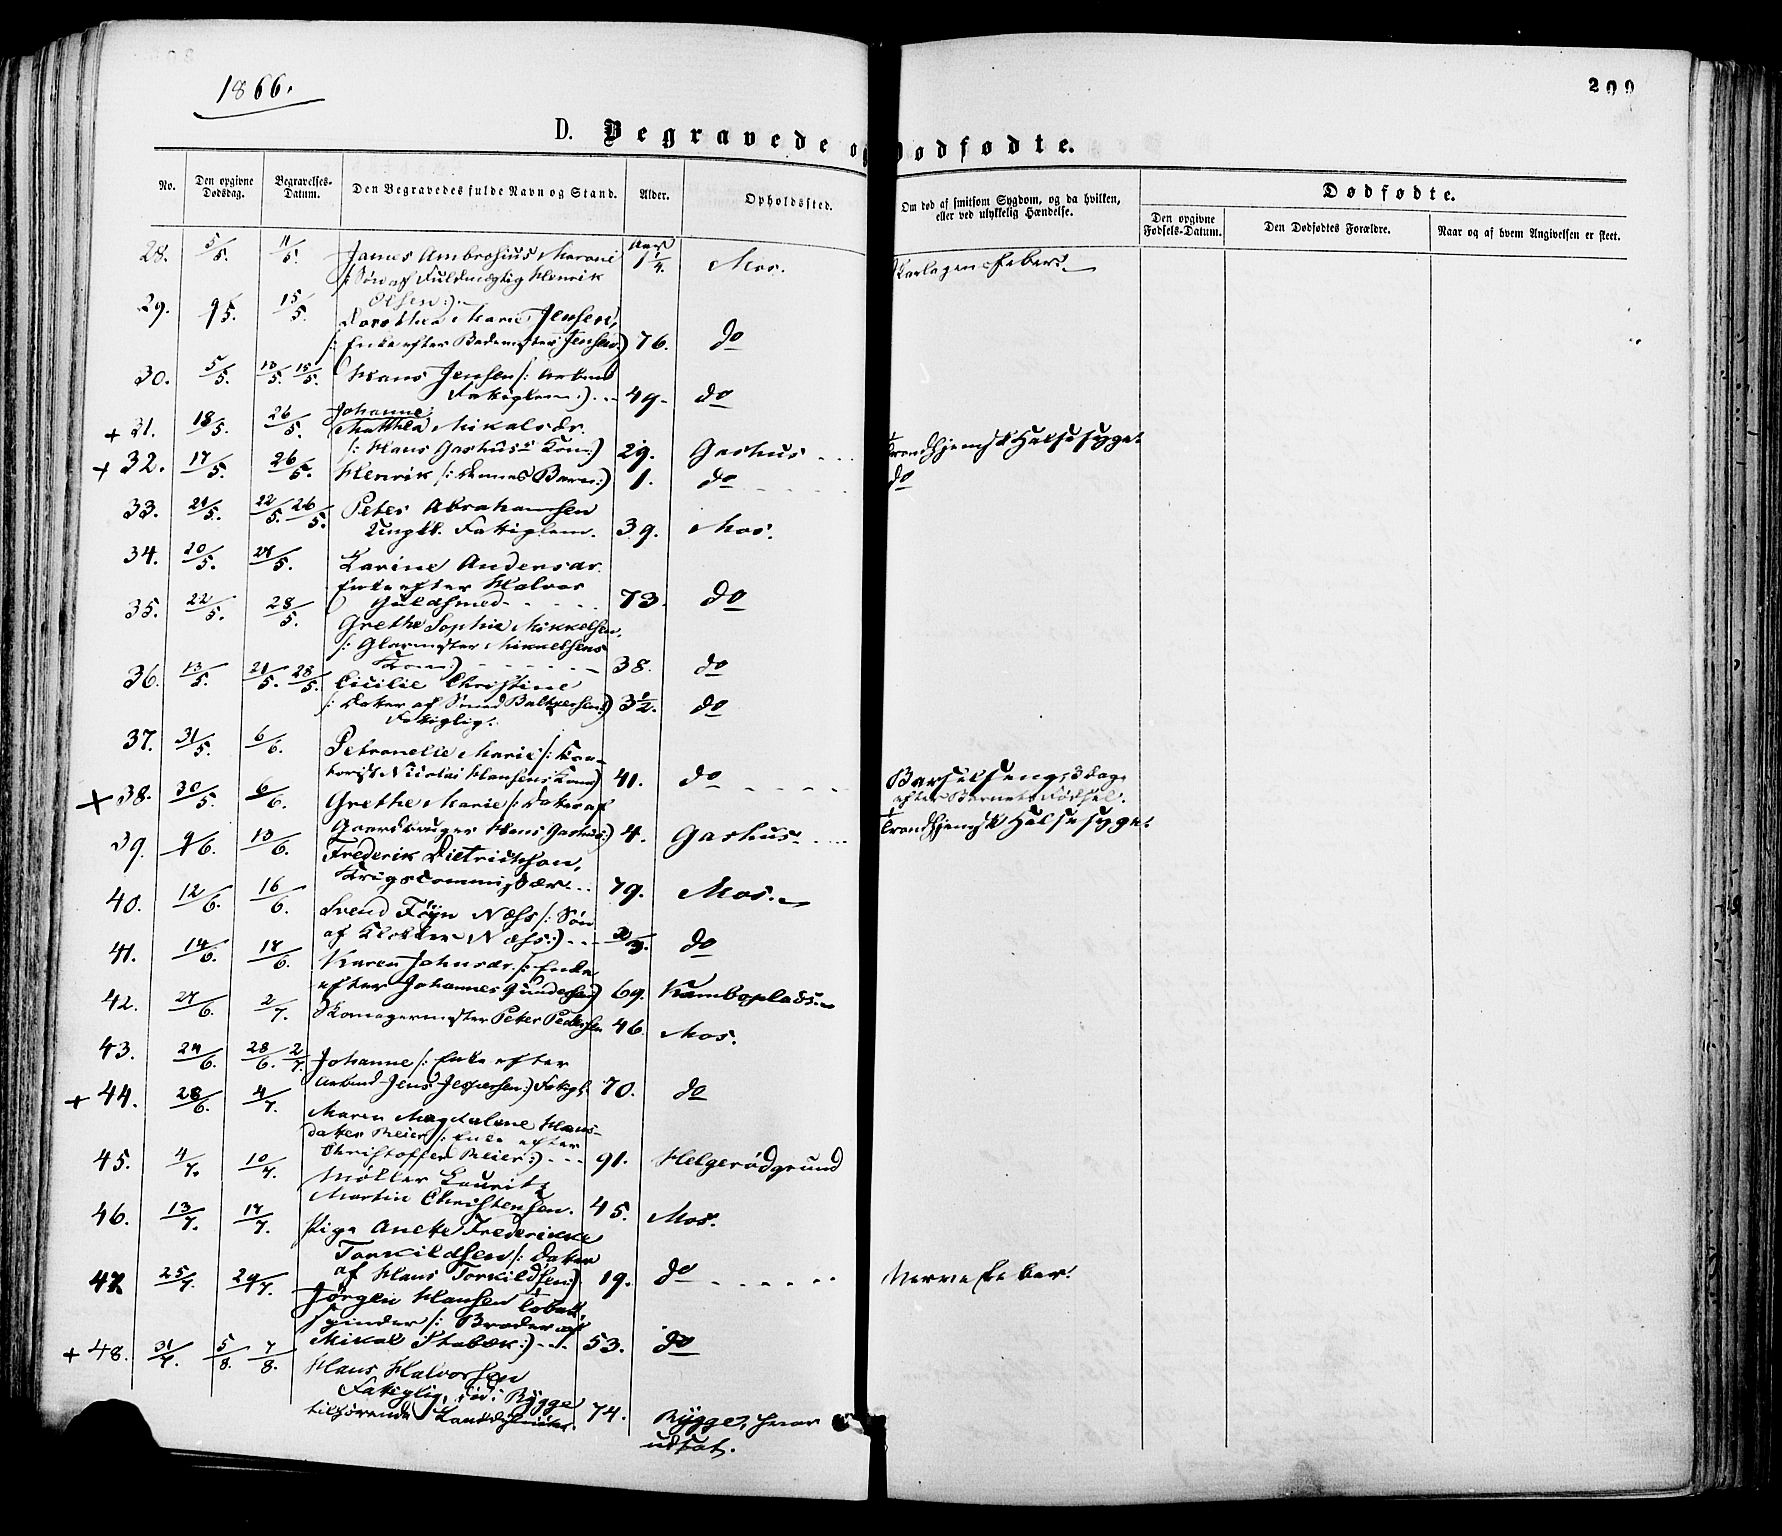 1866.
209
D. Begravede og Dødfødte.
No. Den opgivne Dødsdag. Begravelses-Datum. Den Begravedes fulde Navn og Stand. Alder. Opholdssted. Om død af smitsom Sygdom, og da hvilken, eller ved ulykkelig Hændelse. Dødfødte.
Den opgivne Fødsels-Datum. Den Dødfødtes Forældre. Naar og af hvem Angivelsen er skeet.
28. 5/5. 11/5. James Ambrosius Moroni 1 1/4. Mos. Skarlagensfeber.
/: Søn af Fuldmægtig Henrik
Olsen :)
29. 9/5. 15/5. Dorothea Marie Jensen,
/: Enke efter Bademester Jensen :) 76. do
30. 5/5. 10/5. 15/5. Hans Jensen /: Arbmd
Fattiglem :) 49. do
+ 31. 18/5. 26/5. Johanne
Matthea Mikalsdr.
/: Hans Gashus's Kone :) 29. Gashus Trondhjemsk Halsesyge.
+ 32. 17/5. 26/5. Henrik /: hennes Barn :) 1. do do
33. 21/5. 22/5. 26/5. Peter Abrahamsen
Ungk. Fattiglem. 39. Mos.
34. 20/5. 24/5. Karine Andersdr.
Enke efter Halvor
Guldsmed 73. do
35. 22/5. 28/5. Grethe Sophie Mikkelsen,
/: Glarmester Mikkelsens
Kone :) 38. do
36. 13/5. 21/5. 28/5. Cicilie Christine
/: Datter af Svend Baltzersen :) 3 1/2. do
Fattiglig.
37. 31/5. 6/6. Petronelle Marie /: Kon-
torist Nicolai Hansens Kone :) 41. do Barselseng, 3 Dage
efter Barnets Fødsel.
+ 38. 30/5. 6/6. Grethe Marie /: Datter af
Gaardbruger Hans Gashus :) 4. Gashus Trondhjemsk Halsesyge.
39. 9/6. 13/6. Frederik Dietrichson,
Krigscommissær 79. Mos.
40. 12/6. 16/6. Svend Föyn Næss /: Søn
af Klokker Næss :) 2/3. do
41. 14/6. 18/6. Karen Johnsdr. /: Enke
efter Johannes Gundersen :) 69. Kamboplads.
42. 27/6. 2/7. Skomagermester Peter Pedersen 46. Mos.
43. 24/6. 28/6. 2/7. Johanne /: Enke efter
Arbmd Jens Jespersen :) Fattigl. 70. do
+ 44. 28/6. 4/7. Maren Magdalene Hans-
datter Reier /: Enke efter
Christoffer Reier :) 91. Helgerødgrund
45. 4/7. 10/7. Møller Lauritz
Martin Christensen. 45. Mos.
46. 13/7. 17/7. Pige Anette Frederikke
Torkildsen /: Datter
af Hans Torkildsen :) 19. do Nervefeber.
47. 25/7. 29/7. Jørgen Hansen Tobak-
spinder /: Broder af
Mikal Stabek :) 53. do
+ 48. 31/7. 5/8. 7/8. Hans Halvorsen
Fattiglig, född i Rygge
tilhørende Landdistriktet. 74. Rygge, hvor
udsat.